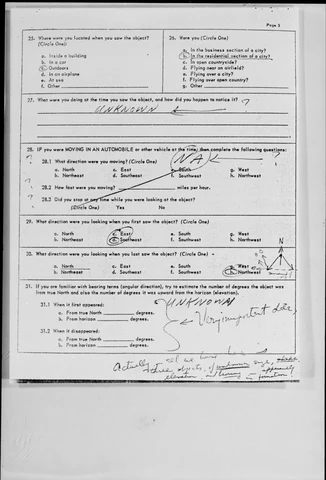 Page 3
25. Where were you located when you saw the object?
(Circle One):
a. Inside a building
b. In a car
c. Outdoors
d. In an airplane
e. At sea
f. Other
26. Were you (Circle One)
a. In the business section of a city?
b. In the residential section of a city?
c. In open countryside?
d. Flying near an airfield?
e. Flying over a city?
f. Flying over open country?
g. Other
27. What were you doing at the time you saw the object, and how did you happen to notice it? ?
UNKNOWN
28. IF you were MOVING IN AN AUTOMOBILE or other vehicle at the time, then complete the following questions:
? 28.1 What direction were you moving? (Circle One) ?
a. North c. East e. South g. West
b. Northeast d. Southeast f. Southwest h. Northwest
? 28.2 How fast were you moving? miles per hour.
? 28.3 Did you stop at any time while you were looking at the object?
(Circle One) Yes No
29. What direction were you looking when you first saw the object? (Circle One)
a. North c. East e. South g. West
b. Northeast d. Southeast f. Southwest h. Northwest
30. What direction were you looking when you last saw the object? (Circle One)
N
a. North c. East e. South g. West
b. Northeast d. Southeast f. Southwest h. Northwest
31. If you are familiar with bearing terms (angular direction), try to estimate the number of degrees the object was
from true North and also the number of degrees it was upward from the horizon (elevation).
UNKNOWN
31.1 When it first appeared:
a. From true North degrees.
b. From horizon degrees.
Very important data
31.2 When it disappeared:
a. From true North degrees.
b. From horizon degrees.
Actually
three objects, of unknown size, shape
elevation and bearing